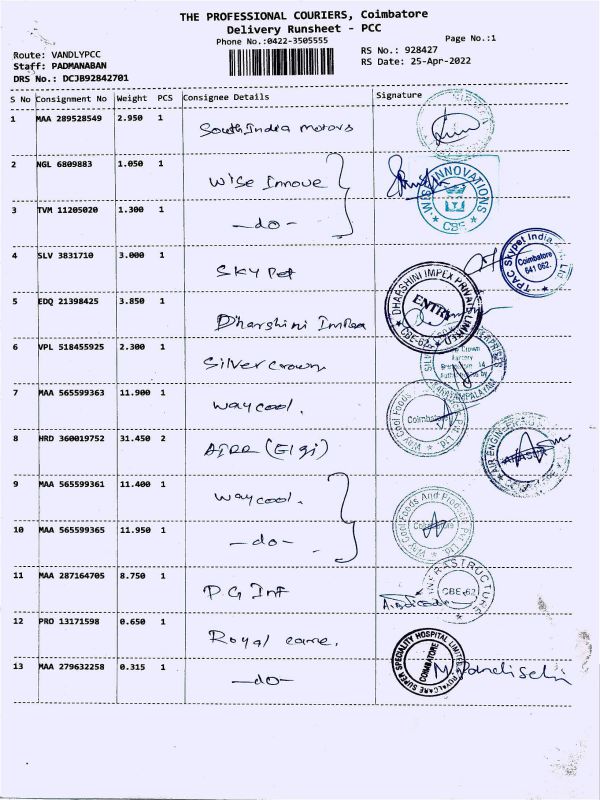 THE PROFESSIONAL COURIERS, Coimbatore
Delivery Runsheet - PCC
Phone No.:0422-3505555
Page No.:1
Route: VANDLYPCC
RS No.: 928427
Staff: PADMANABAN
RS Date: 25-Apr-2022
DRS No.: DCJB92842701
S No Consignment No Weight PCS Consignee Details Signature
1 MAA 289528549 2.950 1 South India motors
2 NGL 6809883 1.050 1 Wise Innove
WISE INNOVATIONS
CBE
3 TVM 11205020 1.300 1 —do—
4 SLV 3831710 3.000 1 SKY Pet
TPAC Skypet India
Coimbatore
641 062.
5 EDQ 21398425 3.850 1 Dharshini Impex
DHARSHINI IMPEX PRIVATE LIMITED
ENTRY
CBE-62
6 VPL 518455925 2.300 1 Silver crown
7 MAA 565599363 11.900 1 Waycool.
Way Cool Foods Pvt Ltd.
Coimbatore
8 HRD 360019752 31.450 2 (Elgi)
9 MAA 565599361 11.400 1 Waycool.
10 MAA 565599365 11.950 1 —do—
Way Cool Foods And Products Pvt Ltd.
Coimbatore
11 MAA 287164705 8.750 1 P G Inf
INFRASTRUCTURE
CBE-62
12 PRO 13171598 0.650 1 Royal care.
13 MAA 279632258 0.315 1 —do—
ROYALCARE SUPER SPECIALITY HOSPITAL LIMITED
COIMBATORE